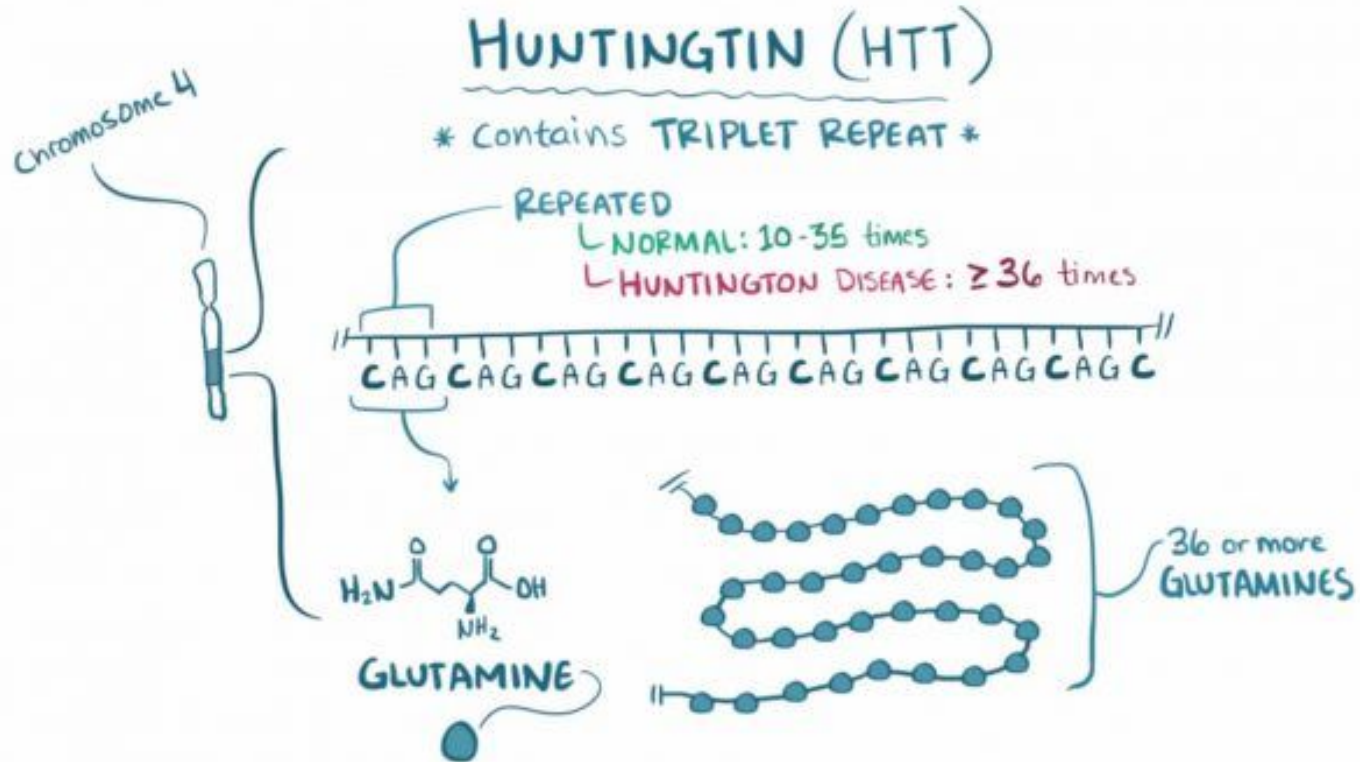 HUNTINGTIN (HTT)
* Contains TRIPLET REPEAT *
Chromosome 4
REPEATED
NORMAL: 10-35 times
HUNTINGTON DISEASE: ≥36 times
CAGCAGCAGCAGCAGCAGCAGCAGCAGC
O O
H₂N OH
NH₂
GLUTAMINE
36 or more
GLUTAMINES